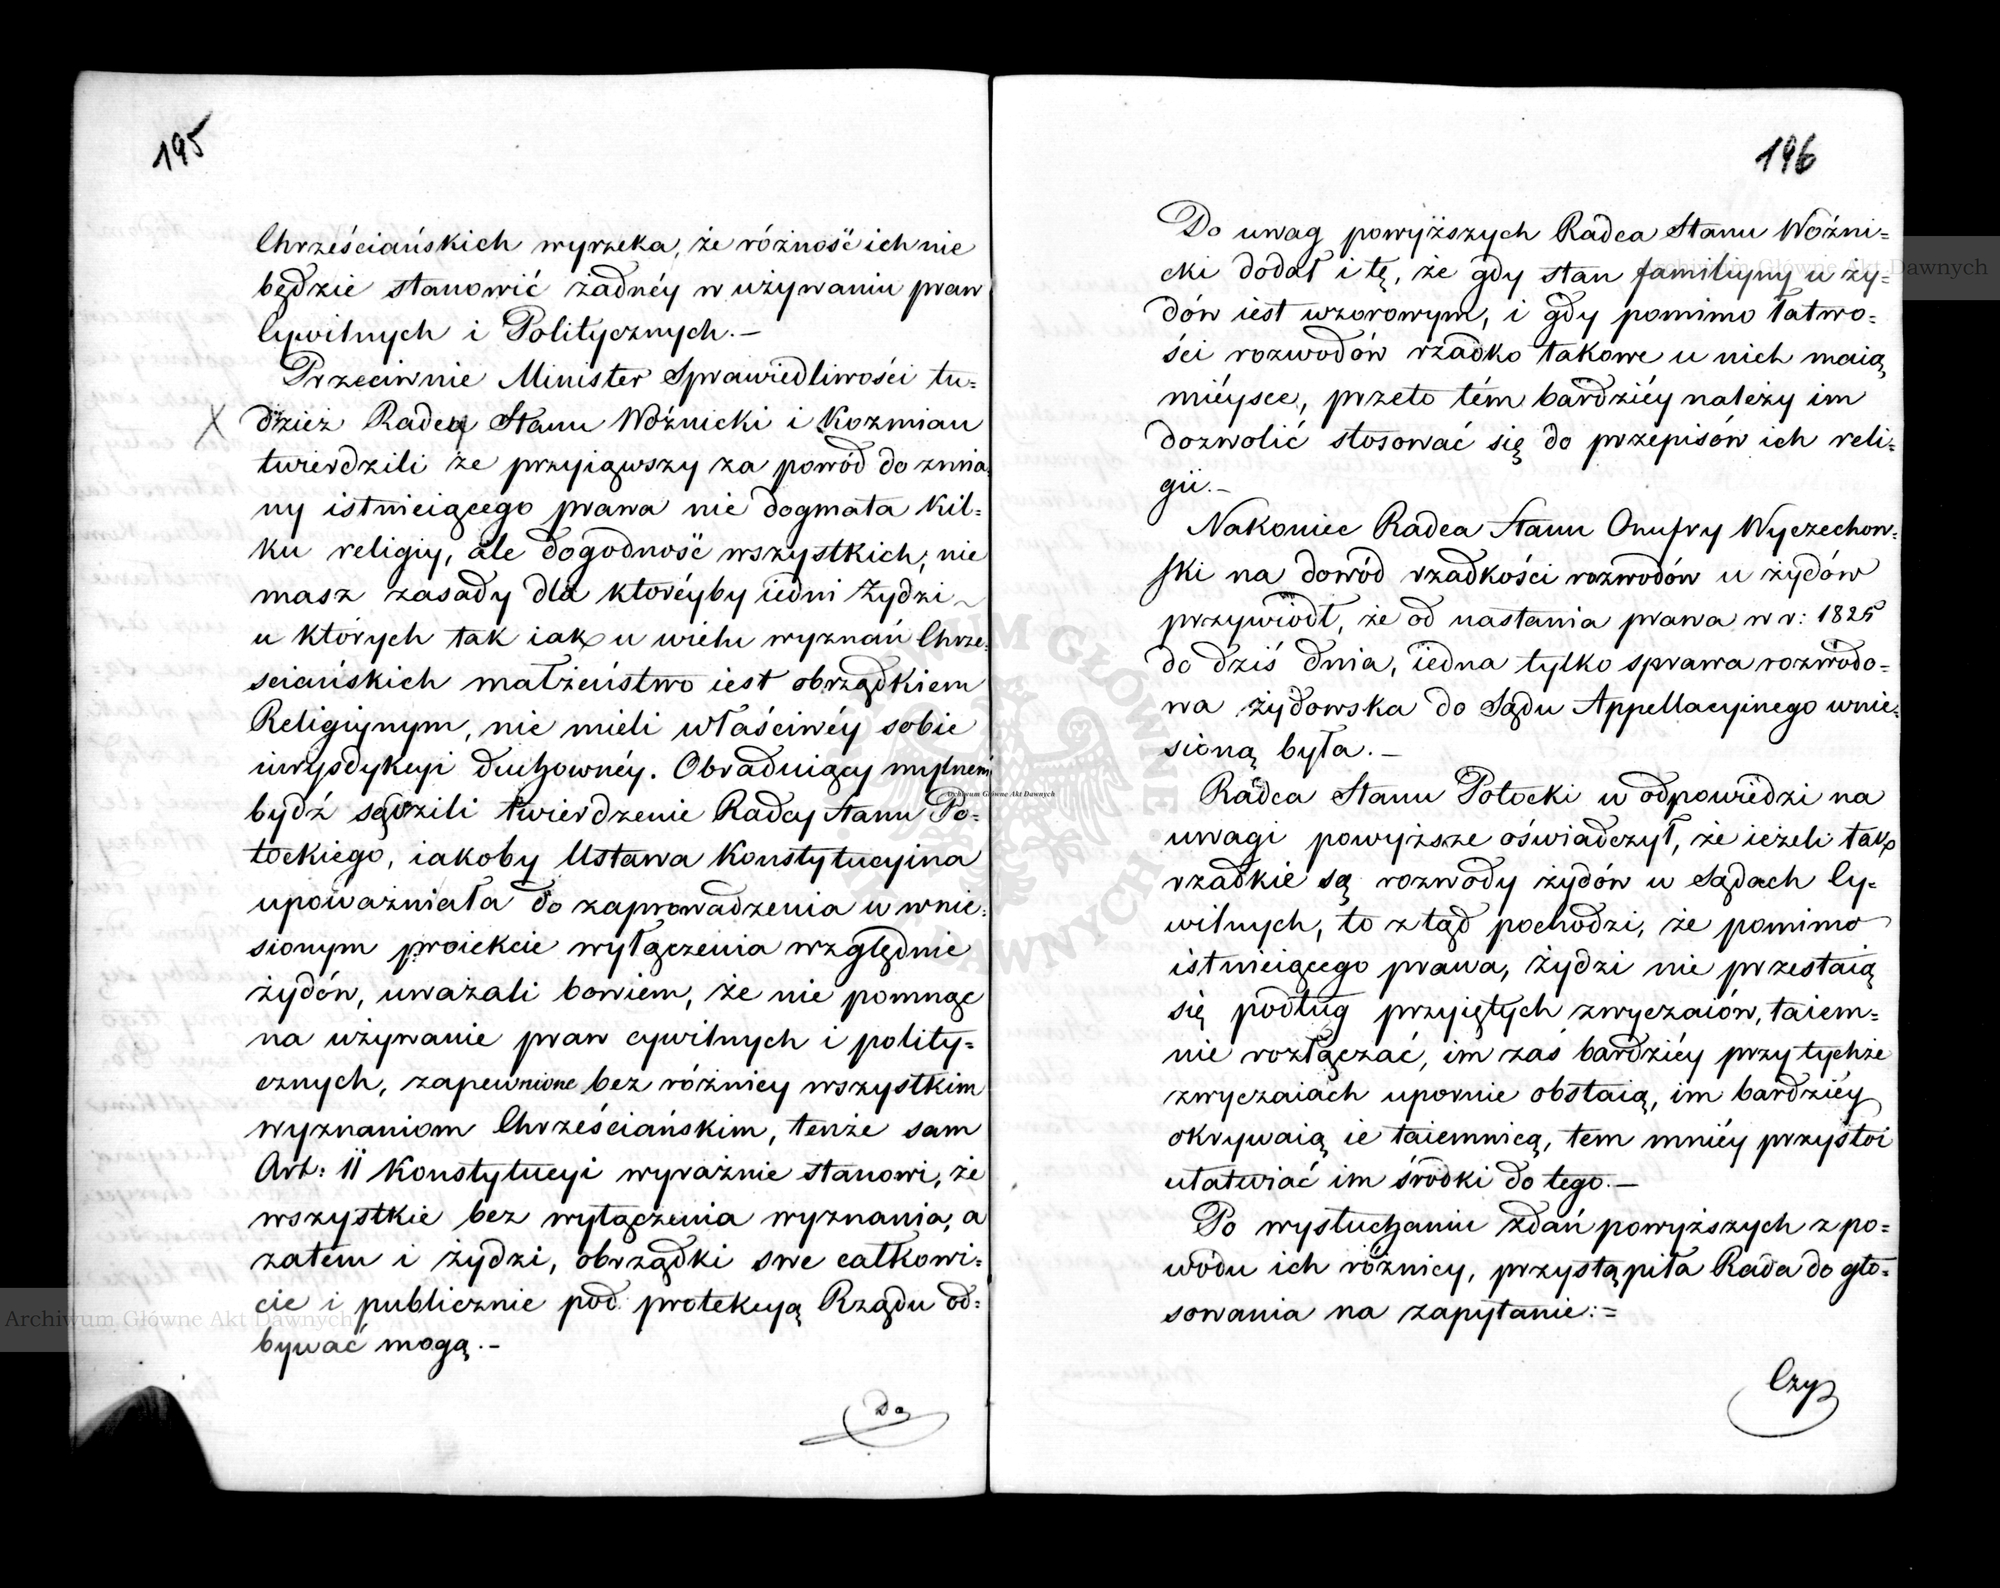 195
Chrześciańskich wyrzeka, że różność ich nie
będzie stanowić żadnéy w używaniu praw
Cywilnych i Politycznych.—
Przeciwnie Minister Sprawiedliwości tu=
X dzież Radcy Stanu Woźnicki i Kozmian
twierdzili że przyiąwszy za powód do zmia=
ny istnieiącego prawa nie dogmata kil=
ku religiy, ale dogodność wszystkich; nie
masz zasady dla któréyby iedni Żydzi
u których tak iak u wielu wyznań Chrze=
sciańskich małżeństwo iest obrządkiem
Religiynym, nie mieli właściwéy sobie
iurysdykcyi duchownéy. Obraduiący mylném
bydź sądzili twierdzenie Radcy Stanu Po=
tockiego, iakoby Ustawa Konstytucyina
upoważniała do zaprowadzenia w wnie=
sionym proiekcie wyłączenia względnie
żydów, uważali bowiem, że nie pomnąc
na używanie praw cywilnych i polity=
cznych, zapewnione bez różnicy wszystkim
wyznaniom Chrześciańskim, tenże sam
Art: 11 Konstytucyi wyraźnie stanowi, że
wszystkie bez wyłączenia wyznania, a
zatem i żydzi, obrządki swe całkowi=
cie i publicznie pod protekcyą Rządu od=
bywać mogą.—
Do
196
Do uwag powyższych Radca Stanu Woźni=
cki dodał i tę, że gdy stan familiyny u ży=
dów iest wzorowym, i gdy pomimo łatwo=
ści rozwodów rzadko takowe u nich maią
miéysce, przeto tém bardziéy należy im
dozwolić stosować się do przepisów ich reli=
gii.—
Nakoniec Radca Stanu Onufry Wyczechow=
ski na dowód rzadkości rozwodów u żydów
przywiódł, że od nastania prawa w r: 1825
do dziś dnia, iedna tylko sprawa rozwodo=
wa żydowska do Sądu Appellacyinego wnie=
sioną była.—
Radca Stanu Potocki w odpowiedzi na
uwagi powyższe oświadczył, że ieżeli tak
rzadkie są rozwody żydów w Sądach Cy=
wilnych, to ztąd pochodzi, że pomimo
istnieiącego prawa, Żydzi nie przestaią
się podług przyiętych zwyczaiów, taiem=
nie rozłączać, im zaś bardziéy przy tychże
zwyczaiach upornie obstaią, im bardziéy
okrywaią ie taiemnicą, tem mniéy przystoi
ułatwiać im środki do tego.—
Po wysłuchaniu zdań powyższych z po=
wodu ich różnicy, przystąpiła Rada do gło=
sowania na zapytanie:=
Czy
Archiwum Główne Akt Dawnych
Archiwum Główne Akt Dawnych
Archiwum Główne Akt Dawnych